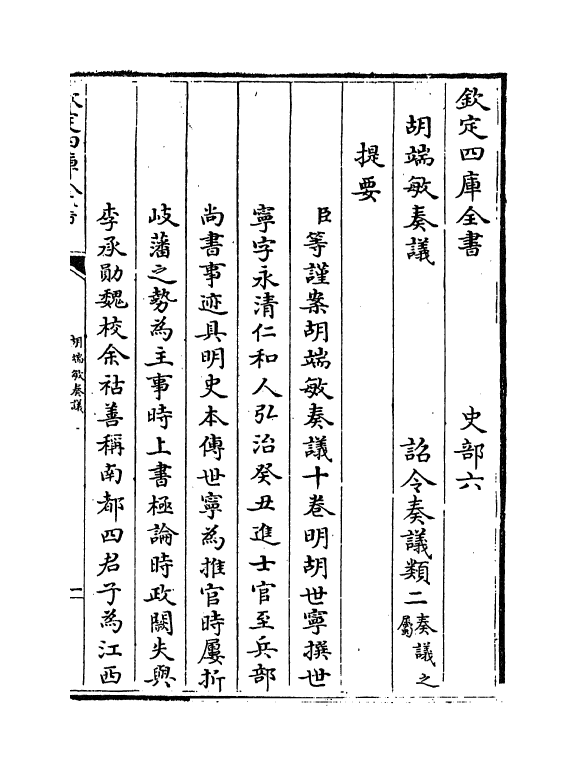 欽定四庫全書　史部六
胡端敏奏議　詔令奏議類二奏議之屬
提要
臣等謹案胡端敏奏議十卷明胡世寧撰世
寧字永清仁和人弘治癸丑進士官至兵部
尚書事迹具明史本傳世寧為推官時屢折
岐藩之勢為主事時上書極論時政闕失與
李承勛魏校余祜善稱南都四君子為江西
胡端敏奏議